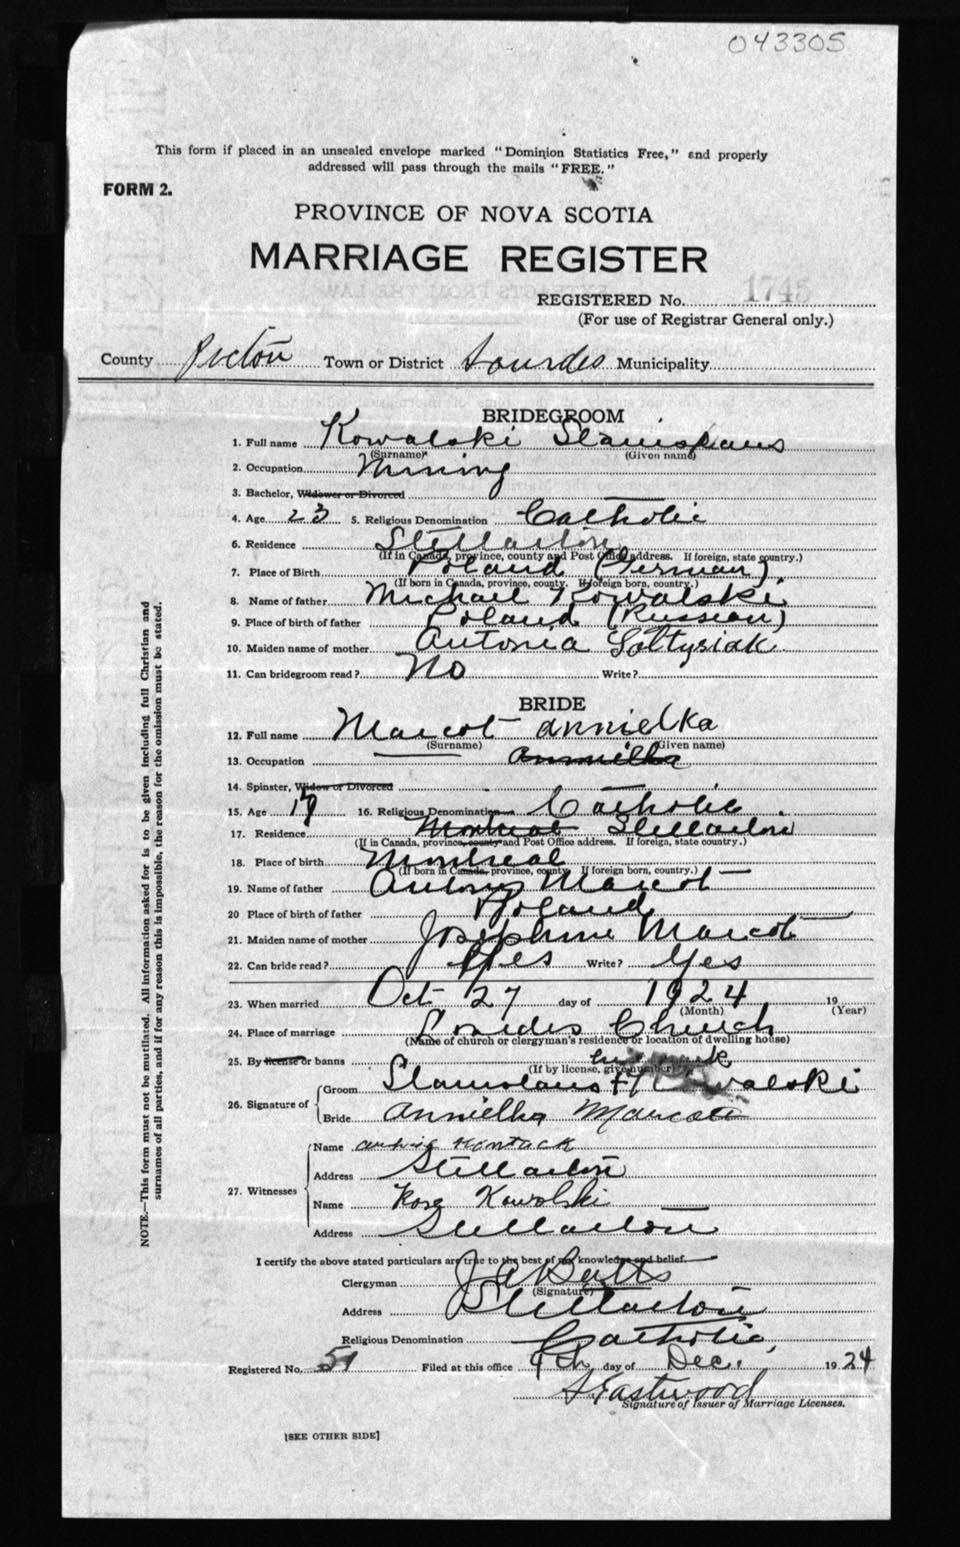 043305
This form if placed in an unsealed envelope marked "Dominion Statistics Free," and properly
addressed will pass through the mails "FREE."
FORM 2.
PROVINCE OF NOVA SCOTIA
MARRIAGE REGISTER
REGISTERED No. 1745
(For use of Registrar General only.)
County Pictou Town or District Lourdes Municipality
BRIDEGROOM
1. Full name Kowalski Stanislaus
(Surname) (Given name)
2. Occupation Mining
3. Bachelor, Widower or Divorced
4. Age 23 5. Religious Denomination Catholic
6. Residence Stellarton
(If in Canada, province, county and Post Office address. If foreign, state country.)
7. Place of Birth Poland (German)
(If born in Canada, province, county. If foreign born, country.)
8. Name of father Michael Kowalski
9. Place of birth of father Poland (Russian)
10. Maiden name of mother Antonia Soltysiak
11. Can bridegroom read? No Write?
BRIDE
12. Full name Marcot Annielka
(Surname) (Given name)
13. Occupation Annielka
14. Spinster, Widow or Divorced
15. Age 19 16. Religious Denomination Catholic
17. Residence Montreal Stellarton
(If in Canada, province, county and Post Office address. If foreign, state country.)
18. Place of birth Montreal
(If born in Canada, province, county. If foreign born, country.)
19. Name of father Antony Marcot
20 Place of birth of father Poland
21. Maiden name of mother Josephine Marcot
22. Can bride read? Yes Write? Yes
23. When married Oct 27 day of 1924 19
(Month) (Year)
24. Place of marriage Lourdes Church
(Name of church or clergyman's residence or location of dwelling house)
25. By license or banns his mark
(If by license, give number)
26. Signature of Groom Stanislaus + Kowalski
Bride Annielka Marcott
27. Witnesses Name
Address Stellarton
Name Rose Kowolski
Address Stellarton
I certify the above stated particulars are true to the best of my knowledge and belief.
Clergyman J A Butts
(Signature)
Address Stellarton
Religious Denomination Catholic
Registered No. 51 Filed at this office 9th day of Dec. 1924
Eastwood
Signature of Issuer of Marriage Licenses.
[SEE OTHER SIDE]
NOTE.—This form must not be mutilated. All information asked for is to be given including full Christian and
surnames of all parties, and if for any reason this is impossible, the reason for the omission must be stated.